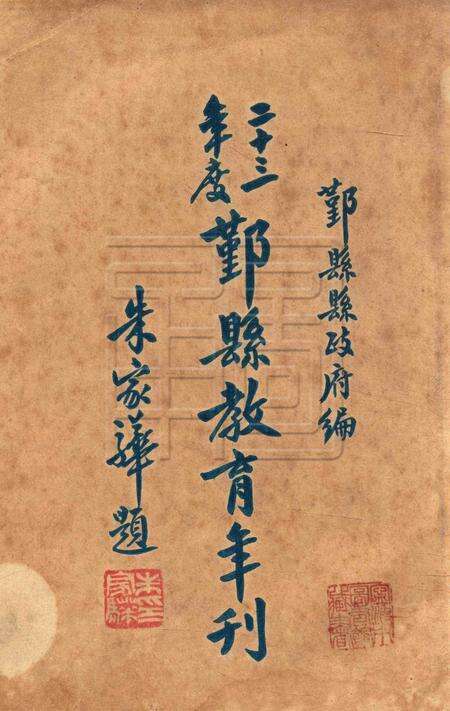 鄞縣縣政府編
二十三
年度
鄞縣教育年刊
朱家驊題